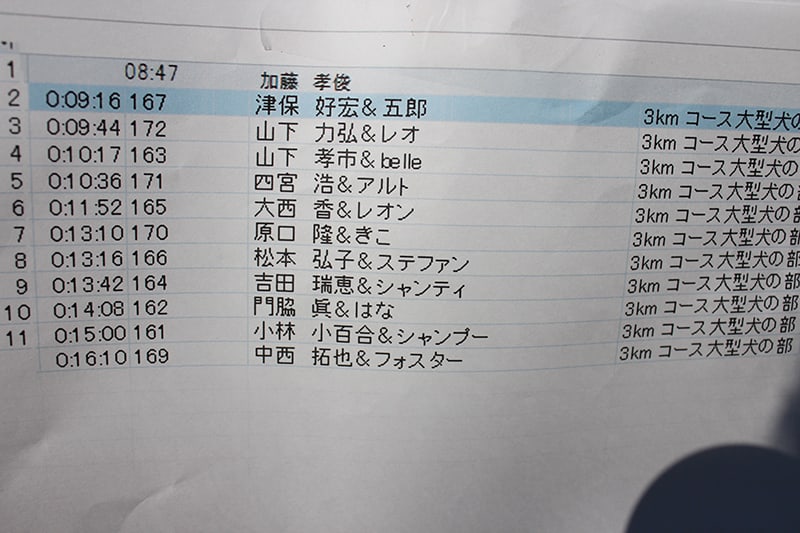 1 08:47 加藤 孝俊
2 0:09:16 167 津保 好宏& 五郎 3km コース大型犬の
3 0:09:44 172 山下 力弘&レオ 3km コース大型犬の
4 0:10:17 163 山下 孝市& belle 3km コース大型犬の
5 0:10:36 171 四宮 浩&アルト 3km コース大型犬の部
6 0:11:52 165 大西 香&レオン 3km コース大型犬の部
7 0:13:10 170 原口 隆&きこ 3km コース大型犬の部
8 0:13:16 166 松本 弘子&ステファン 3km コース大型犬の部
9 0:13:42 164 吉田 瑞恵&シャンティ 3km コース大型犬の部
10 0:14:08 162 門脇 眞&はな 3km コース大型犬の部
11 0:15:00 161 小林 小百合&シャンプー 3km コース大型犬の部
0:16:10 169 中西 拓也&フォスター 3km コース大型犬の部